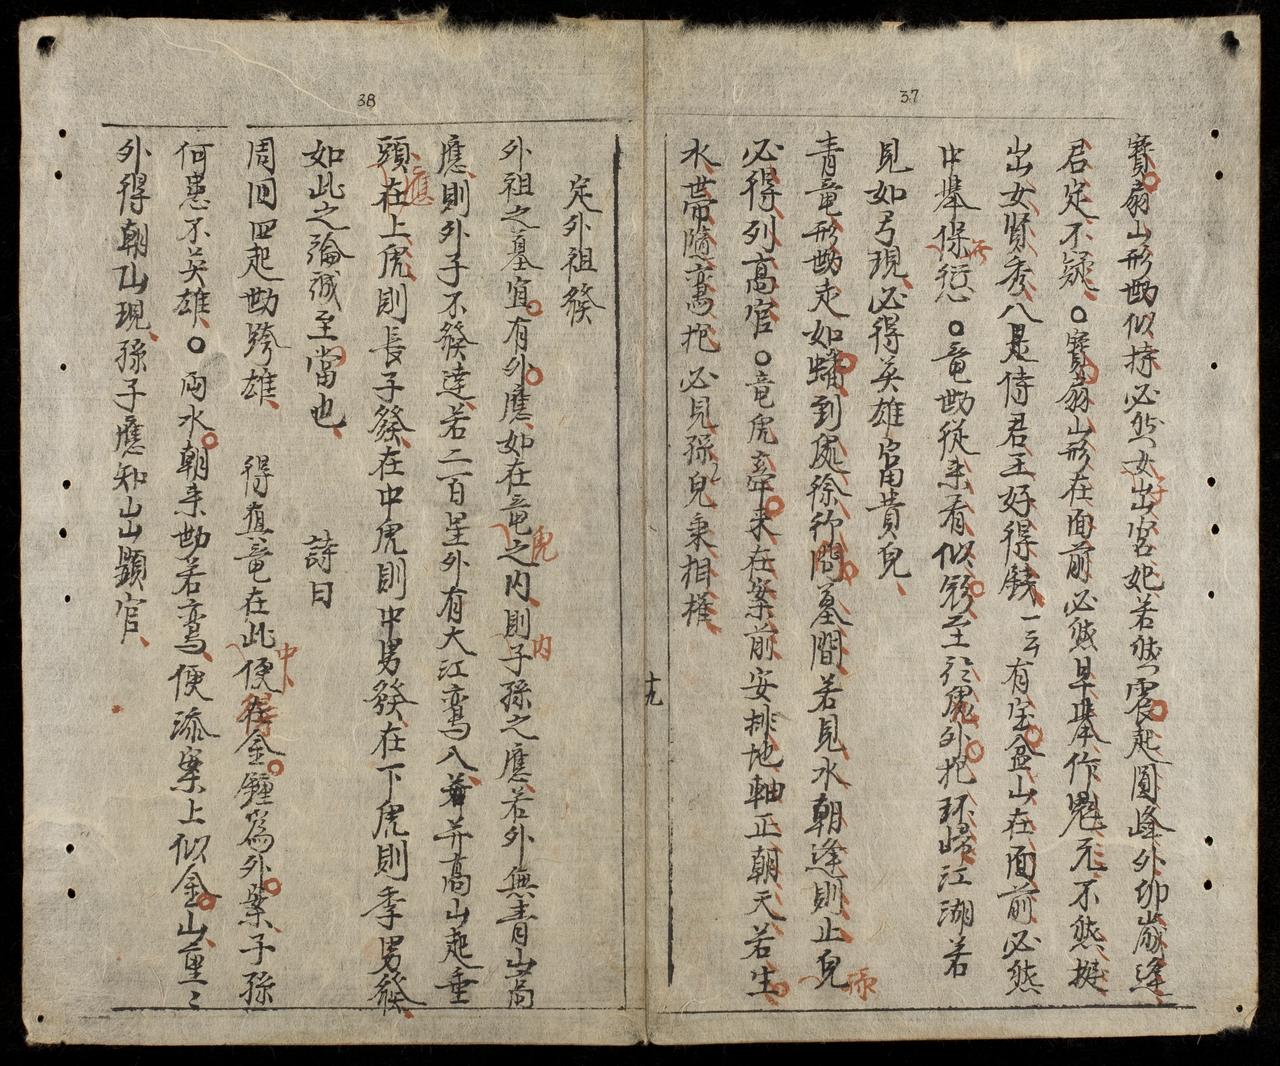 37
寶扇山形勘似持必然女出宮妃若然震起圓峰外卯嵗逢
君定不疑○寶扇山形在面前必然早舉作魁元不然挺
出女賢秀八是侍君王好得錢一云有宝盆山在面前必然
中舉保愆○竜勘従来看似形至於鬼外抱环歸江湖若
見如弓現必得英雄富貴皃
青竜形勘走如蟠到處徐徐問墓間若見水朝逢則止皃
必得列高官○竜虎牽来在案前安排地軸正朝天若生
水帶隨弯抱必見孫兒秉相權
十九
38
定外祖發
外祖之墓宜有外應如在竜之内則子孫之應若外無青山高
應則外子不發達若二百里外有大江弯入着并高山起重
頭在上虎則長子發在中虎則中男發在下虎則季男發
如此之論誠至當也 詩曰
周囬四起勘跨雄 得直竜在此便在金鐘爲外案子孫
何患不英雄○兩水朝来勘若弯便添案上似金山重〻
外得朝山現孫子應知出顯官
應
虎
内
中
得
子
所
孫